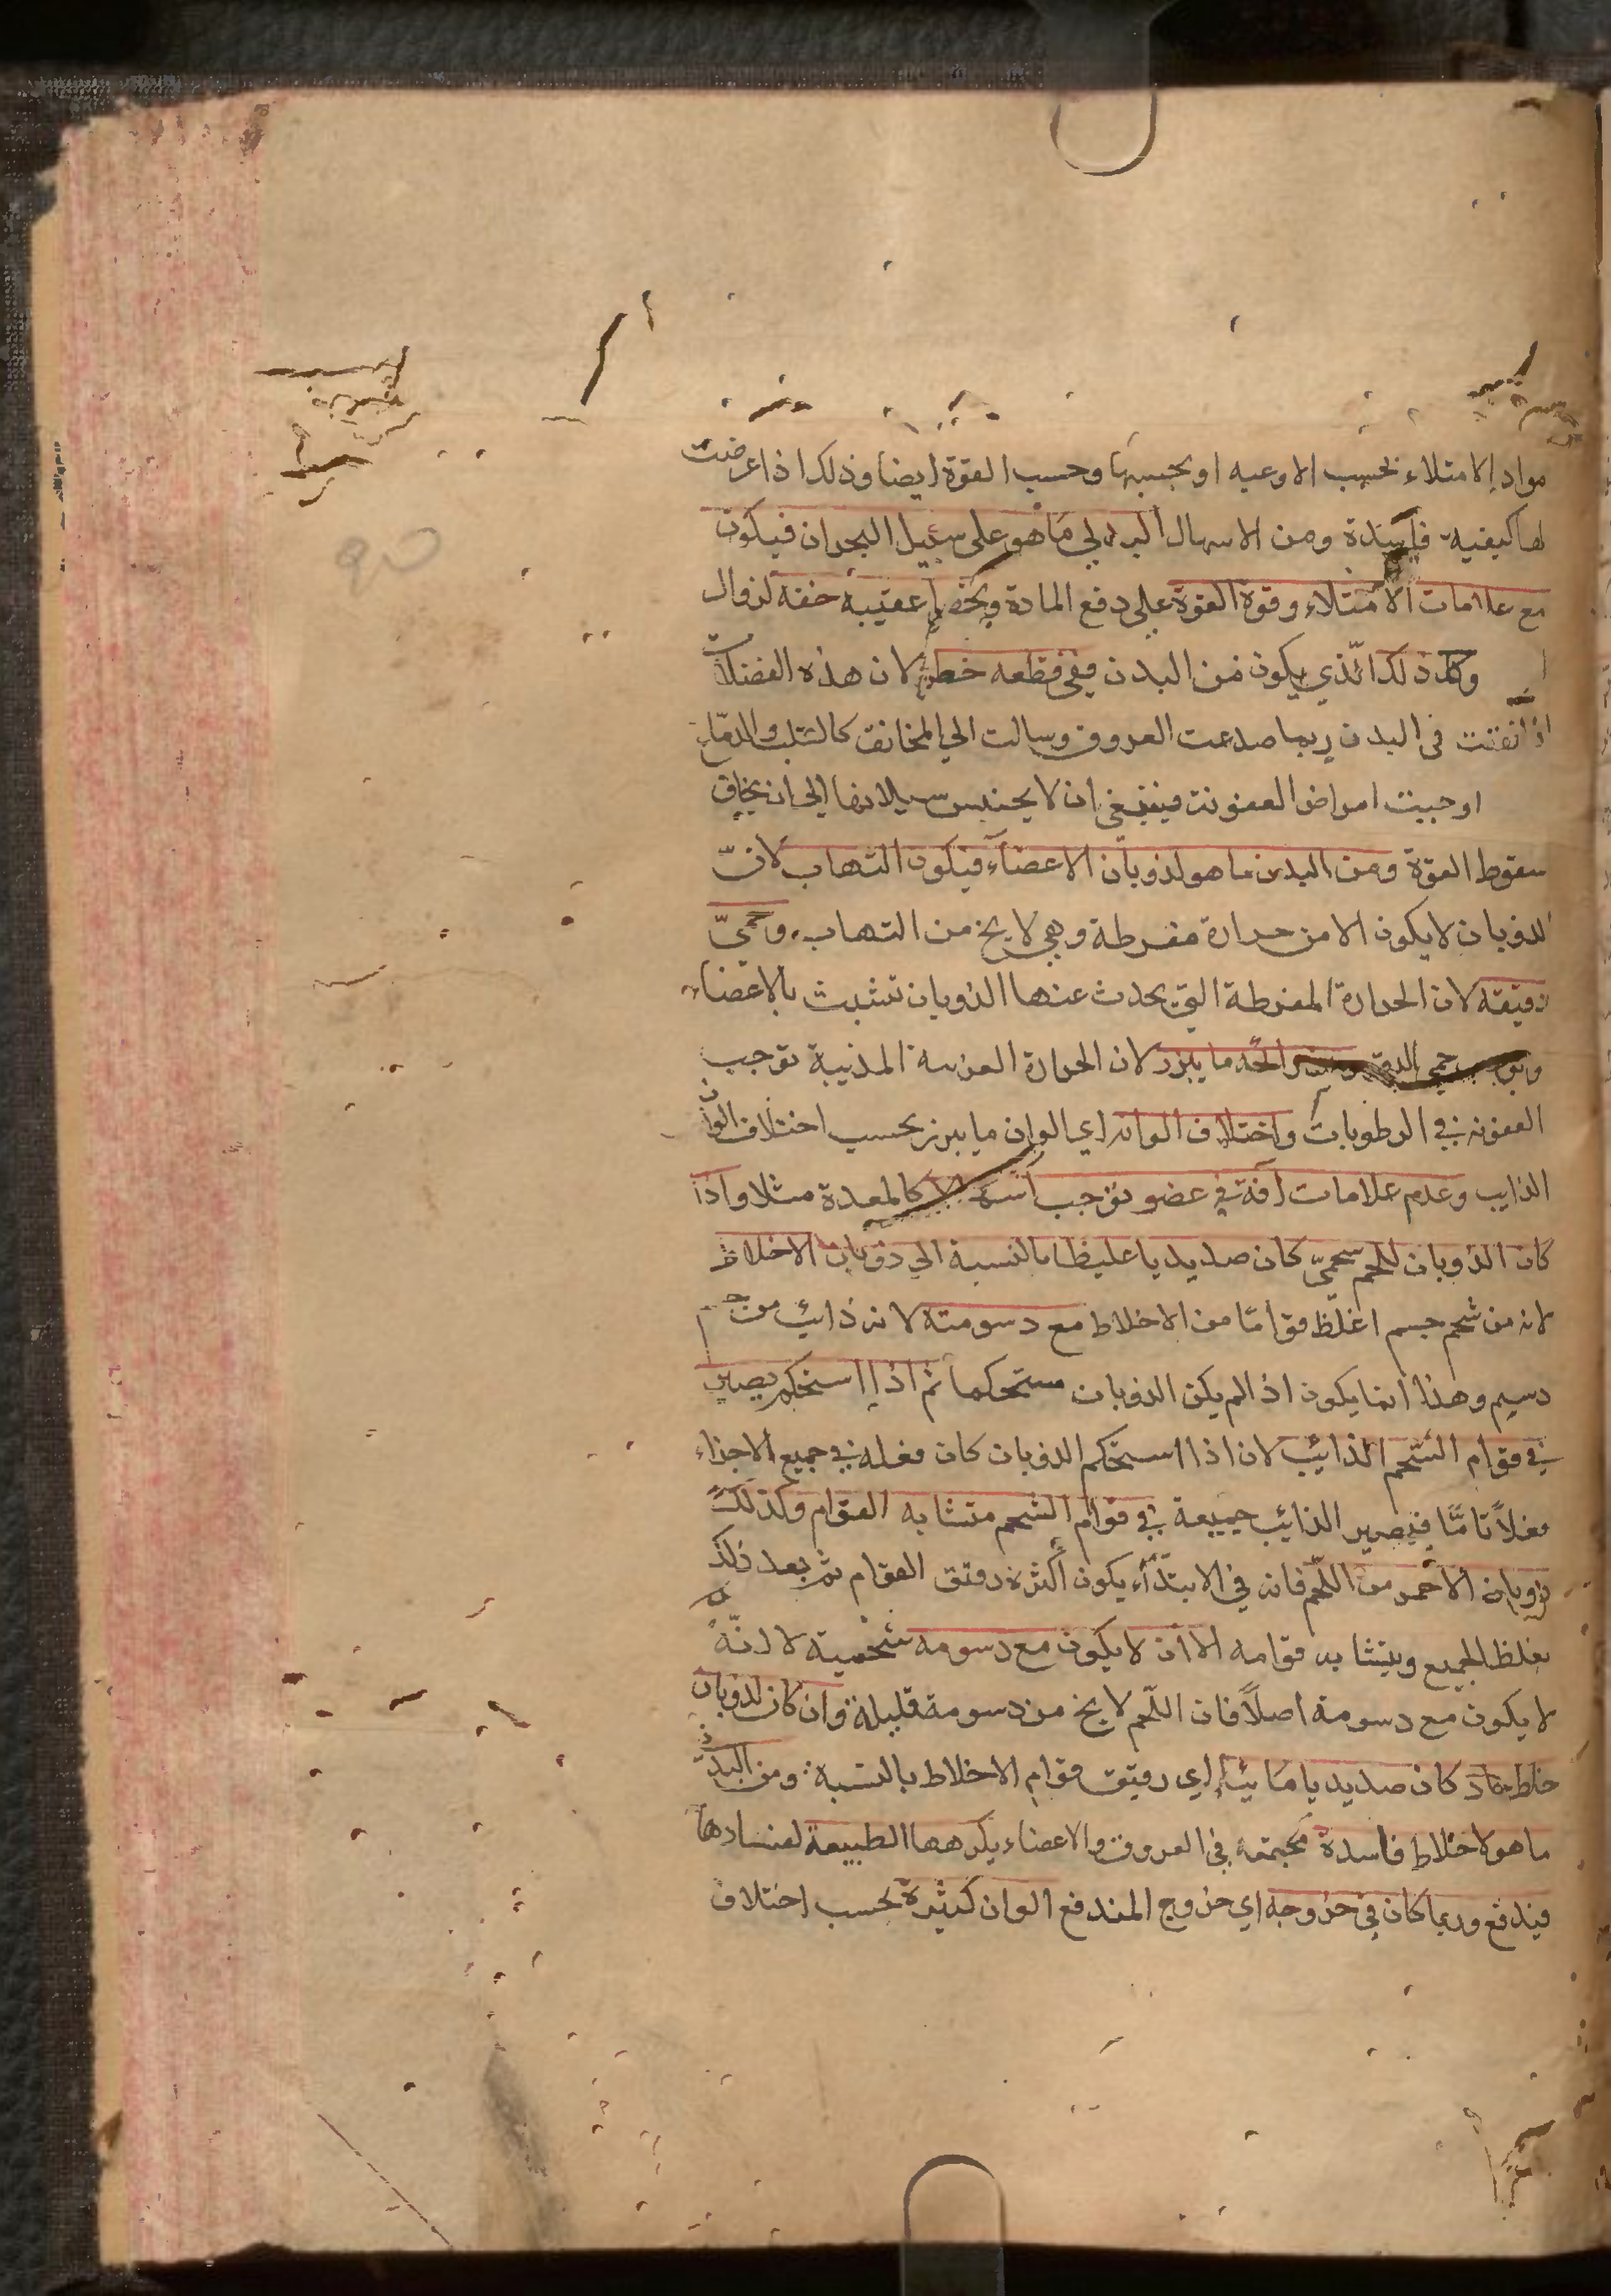 مواد الامتلاء بحسب الاوعيه او بحسبها وحسب القوة ايضا وذلك اذا عرضت
لها كيفيه فاسدة ومن الاسهال البدني ما هو على سبيل البحران فيكون
مع علامات الامتلاء وقوة القوة على دفع المادة ويحصل عقيبه خفة لزوال
وكذلك الذي يكون من البدن ففي قطعه خطر لان هذه الفضلات
اذا نفتت في البدن ربما صدعت العروق وسالت الى المخانق كالقلب والدماغ
او جبت امراض العفونت فينبغي ان لا يحتبس سيلانها الى ان يخاف
سقوط القوة ومن البدن ما هو لذوبان الاعضاء فيكون التهاب لانّ
الذوبان لا يكون الا من حرارة مفرطة وهي لا يخ من التهاب وحمىّ
دقيقه لان الحرارة المفرطة التي يحدث عنها الذوبان تتشبث بالاعضاء
حمى الدق ما يبرز لان الحرارة الغريبه المذيبة توجب
العفونه في الرطوبات واختلاف الوانه اي الوان ما يبرز بحسب اختلاف الوان
الذايب وعدم علامات آفة في عضو توجب كالمعدة مثلا واذا
كان الذوبان للحم شحمىّ كان صديديا غليظا بالنسبة الى ذوبان الاخلاط
لانه من شحم جسم اغلظ قواما من الاخلاط مع دسومته لانه ذائب من جسم
دسيم وهذا انما يكون اذا لم يكن الذوبان مستحكما ثم اذا استحكم يصير
في قوام الشحم الذائب لان اذا استحكم الذوبان كان فعله في جميع الاجزاء
فعلاً تامًّا فيصير الذائب جميعة في قوام الشحم متشابه القوام وكذلك
ذوبان الاحمر من اللّحم فانه في الابتدآء يكون أكثره دقيق القوام ثم بعد ذلك
يغلظ الجميع ويتشابه قوامه الا ان لا يكون مع دسومه شحمية لا انّه
لا يكون مع دسومة اصلاً فان اللّحم لا يخ من دسومة قليلة وان كان لذوبان
خلط حاد كان صديديا مائيا اي رقيق قوام الاخلاط بالنسبة ومن البدن
ما هو لاخلاط فاسدة مجتمعه في العروق والاعضاء يكرهها الطبيعة لفسادها
فيندفع وربما كان في خروجه اي خروج المندفع الوان كثيرة بحسب اختلاف